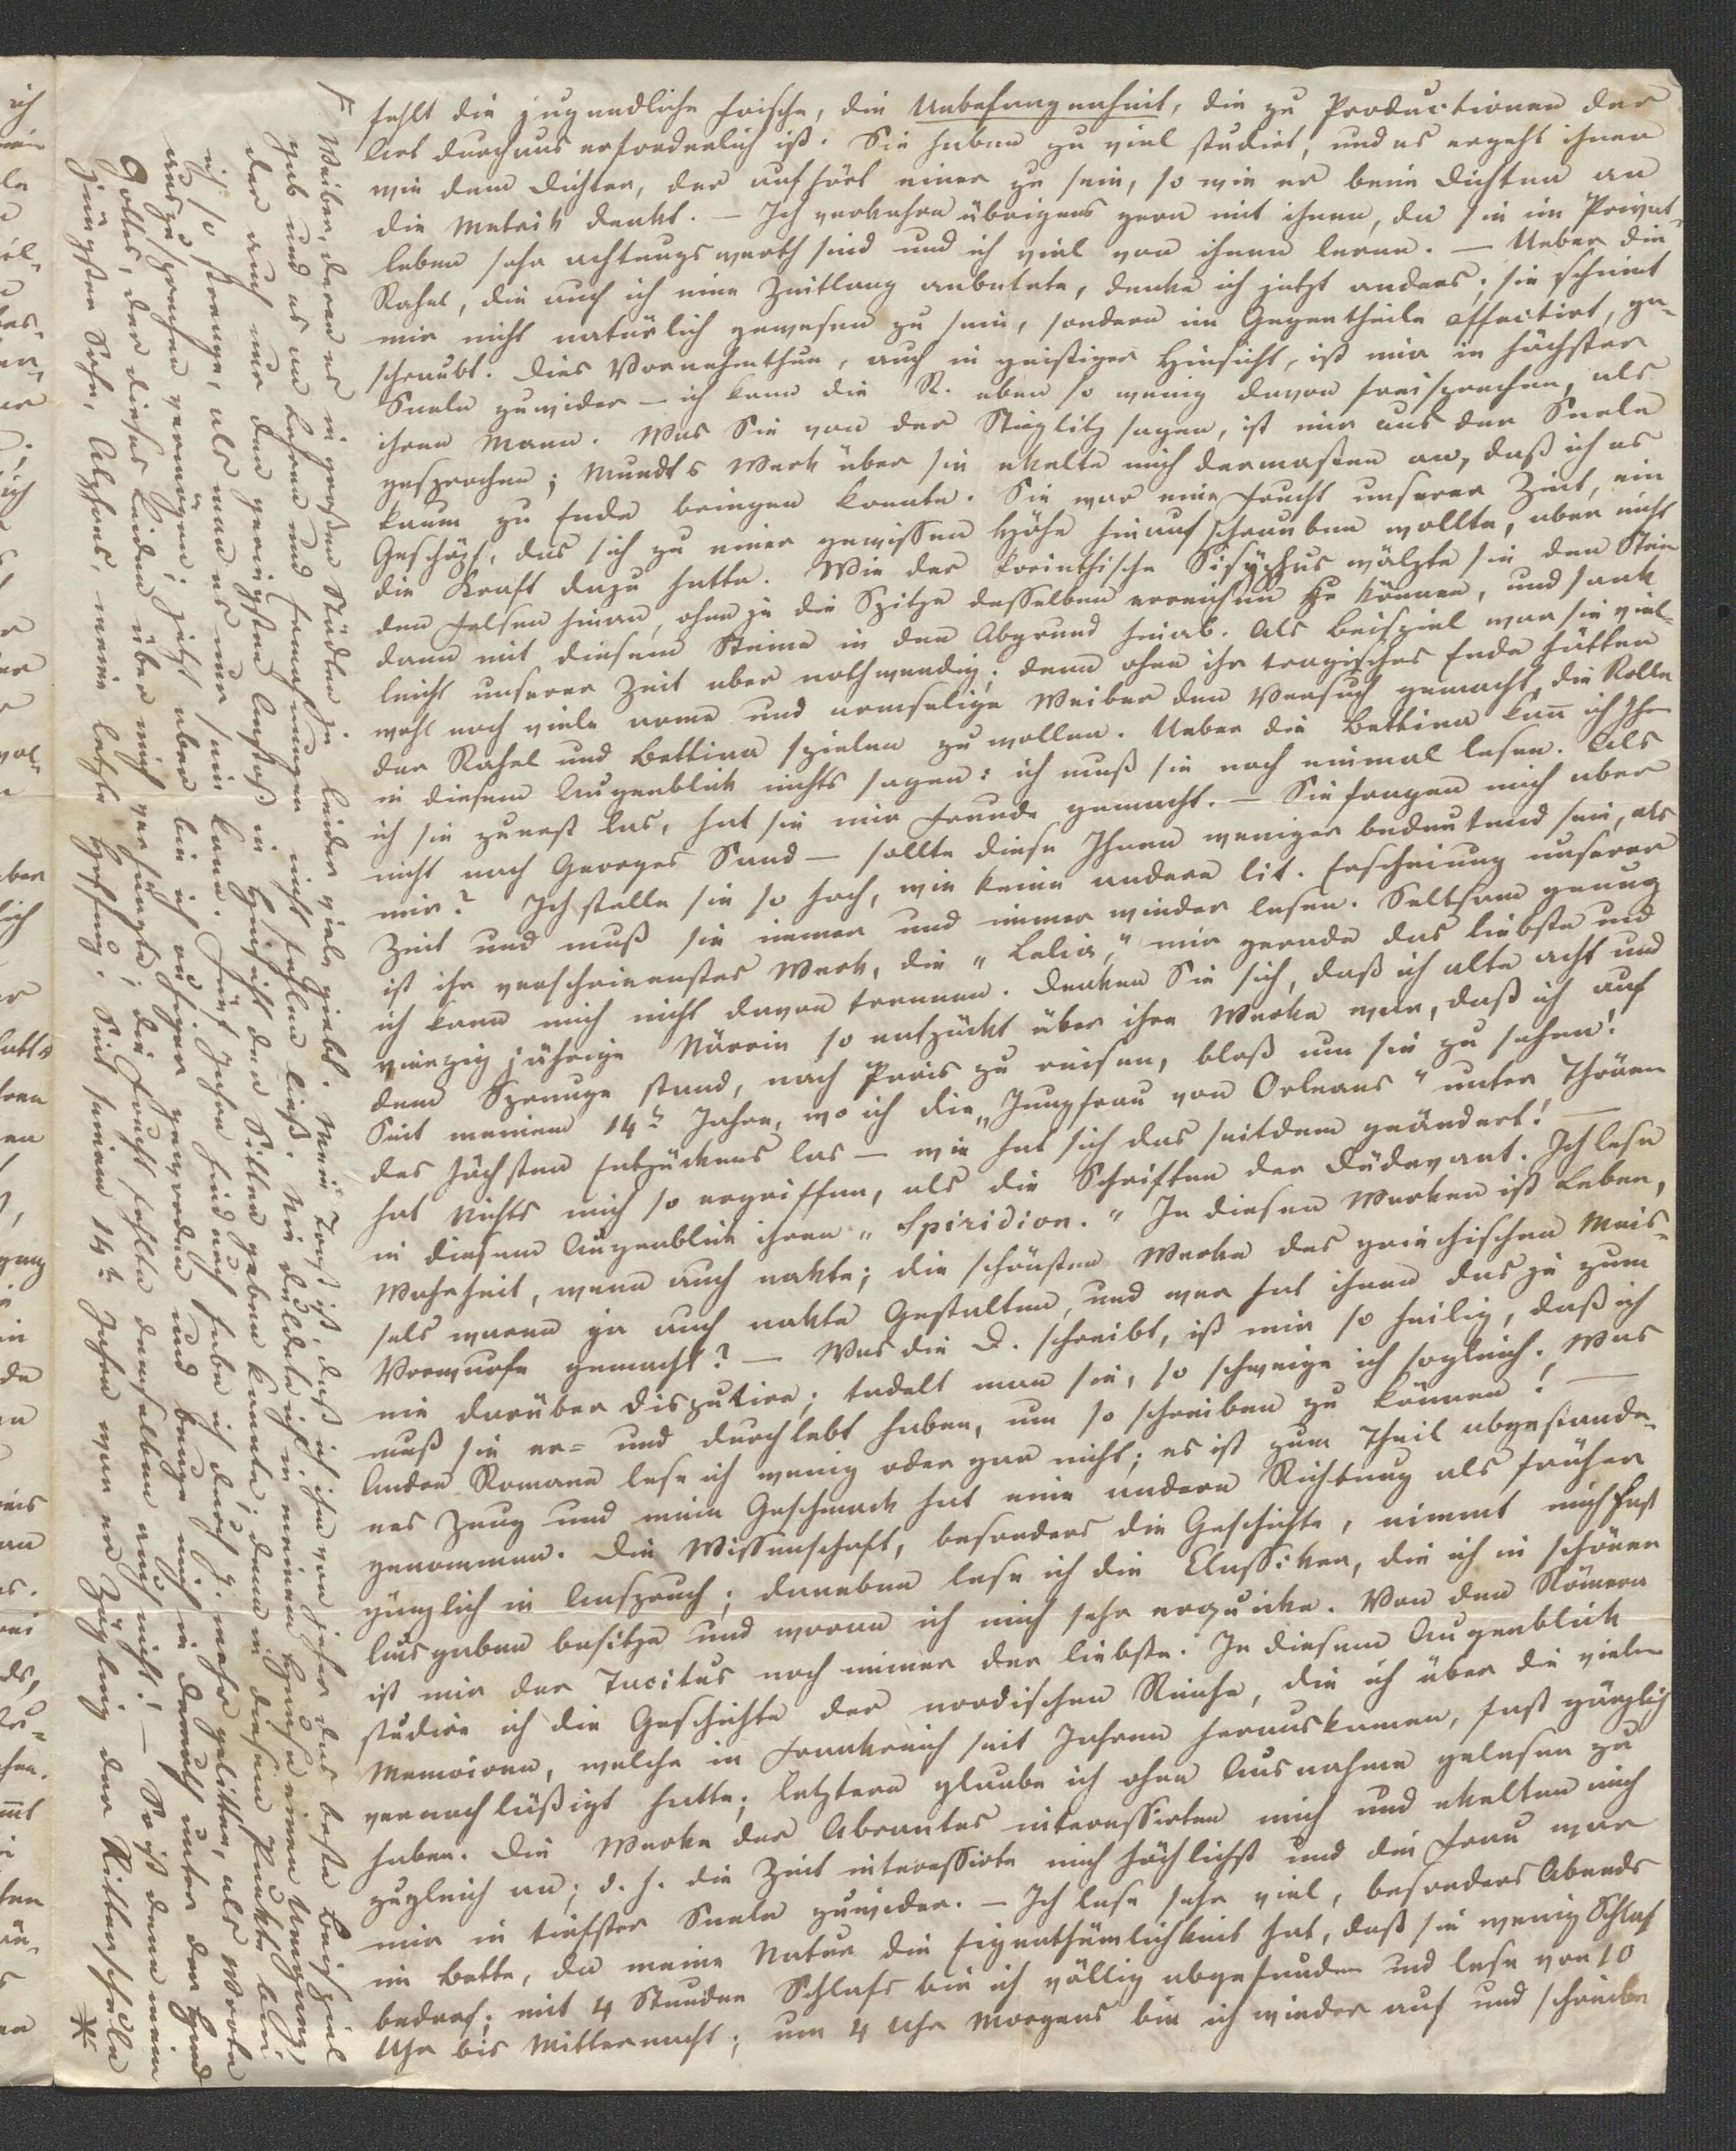 fehlt die jugendliche Frische, die Unbefangenheit, die zu Productionen der
Art durchaus erforderlich ist. Sie haben zu viel studirt, und es ergeht ihnen
wie dem Dichter, der aufhört einer zu sein, so wie er beim Dichten an
die Metrik denkt. — Ich verkehre übrigens gern mit ihnen, da sie im Privat-
leben sehr achtungswerth sind und ich viel von ihnen lerne. — Ueber die
Rahel, die auch ich eine Zeitlang anbetete, denke ich jetzt anders; sie scheint
mir nicht natürlich gewesen zu sein, sondern im Gegentheile affectirt, ge-
schraubt. Dies Vornehmthun, auch in geistiger Hinsicht, ist mir in höchster
Seele zuwider — ich kann die R. eben so wenig davon freisprechen, als
ihren Mann. Was Sie von der Stieglitz sagen, ist mir aus der Seele
gesprochen; Mundts Werk über sie ekelte mich dermaßen an, daß ich es
kaum zu Ende bringen konnte. Sie war eine Frucht unserer Zeit, ein
Geschöpf, das sich zu einer gewissen Höhe hinaufschrauben wollte, aber nicht
die Kraft dazu hatte. Wie der korinthische Sisyphus wälzte sie den Stein
den Felsen hinan, ohne je die Spitze desselben erreichen zu können, und sank
dann mit diesem Steine in den Abgrund hinab. Als Beispiel war sie viel-
leicht unserer Zeit aber nothwendig; denn ohne ihr tragisches Ende hätten
wohl noch viele arme und armselige Weiber den Versuch gemacht, die Rolle
der Rahel und Bettina spielen zu wollen. Ueber die Bettina kan̅ ich Ihn
in diesem Augenblick nichts sagen: ich muß sie noch einmal lesen. Als
ich sie zuerst las, hat sie mir Freude gemacht. — Sie fragen mich aber
nicht nach Georges Sand — sollte diese Ihnen weniger bedeutend sein, als
mir? Ich stelle sie so hoch, wie keine andere lit. Erscheinung unserer
Zeit und muß sie immer und immer wieder lesen. Seltsam genug
ist ihr verschrieenstes Werk, die „Lelia," mir gerade das liebste und
ich kann mich nicht davon trennen. Denken Sie sich, daß ich alte acht und
vierzig jährige Närrin so entzückt über ihre Werke war, daß ich auf
dem Sprunge stand, nach Paris zu reisen, bloß um sie zu sehen!
Seit meinem 14ⁿ Jahre, wo ich die „Jungfrau von Orleans" unter Thränen
des höchsten Entzückens las — wie hat sich das seitdem geändert! —
hat Nichts mich so ergriffen, als die Schriften der Düdevant. Ich lese
in diesem Augenblick ihren „Spiridion." In diesen Werken ist Leben,
Wahrheit, wenn auch nakte; die schönsten Werke des griechischen Meis-
sels waren ja auch nakte Gestalten, und wer hat ihnen das je zum
Vorwurfe gemacht? — Was die D. schreibt, ist mir so heilig, daß ich
nie darüber disputire; tadelt man sie, so schweige ich sogleich. Was
muß sie er= und durchlebt haben, um so schreiben zu können! —
Andre Romane lese ich wenig oder gar nicht; es ist zum Theil abgestande-
nes Zeug und mein Geschmack hat eine andere Richtung als früher
genommen. Die Wissenschaft, besonders die Geschichte, nimmt mich fast
gänzlich in Anspruch; daneben lese ich die Classiker, die ich in schönen
Ausgaben besitze und woran ich mich sehr erquicke. Von den Römern
ist mir der Tacitus noch immer der liebste. In diesem Augenblick
studire ich die Geschichte der nordischen Reiche, die ich über die vielen
Memoiren, welche in Frankreich seit Jahren herauskamen, fast gänzlich
vernachläßigt hatte; letztere glaube ich ohne Ausnahme gelesen zu
haben. Die Werke der Abrantes interessirten mich und ekelten mich
zugleich an; d. h. die Zeit interessirte mich höchlichst und die Frau war
mir in tiefster Seele zuwider. — Ich lese sehr viel, besonders Abends
im Bette, da meine Natur die Eigenthümlichkeit hat, daß sie wenig Schlaf
bedarf; mit 4 Stunden Schlafs bin ich völlig abgefunden und lese von 10
Uhr bis Mitternacht; um 4 Uhr Morgens bin ich wieder auf und schreibe
F Weiber, deren es in großen Städten ja leider viele giebt. Mein Trost ist, daß ich ihm von jeher das beste Beispiel
gab und es an Lehren und Ermahnungen nicht fehlen ließ. Nie duldete ich in meinem Hause einen Umgang,
der auch nur den geringsten Anstoß in Hinsicht der Sitten geben konnte; denn in diesem Punkte bin
ich so strenge, als man es nur sein kann. Fünf Jahre hindurch habe ich durch ihn mehr gelitten, als Worte
auszusprechen vermögen; jetzt aber bin ich ruhiger geworden und beuge mich in Demuth unter der Hand
Gottes, der dieses Leiden über mich verhängte; die Frucht fehlte demselben auch nicht! — So ist denn mein
jüngster Sohn, Alphons, meine letzte Hoffnung. Seit seinem 14ⁿ Jahre war er Zögling der Ritterschule
*